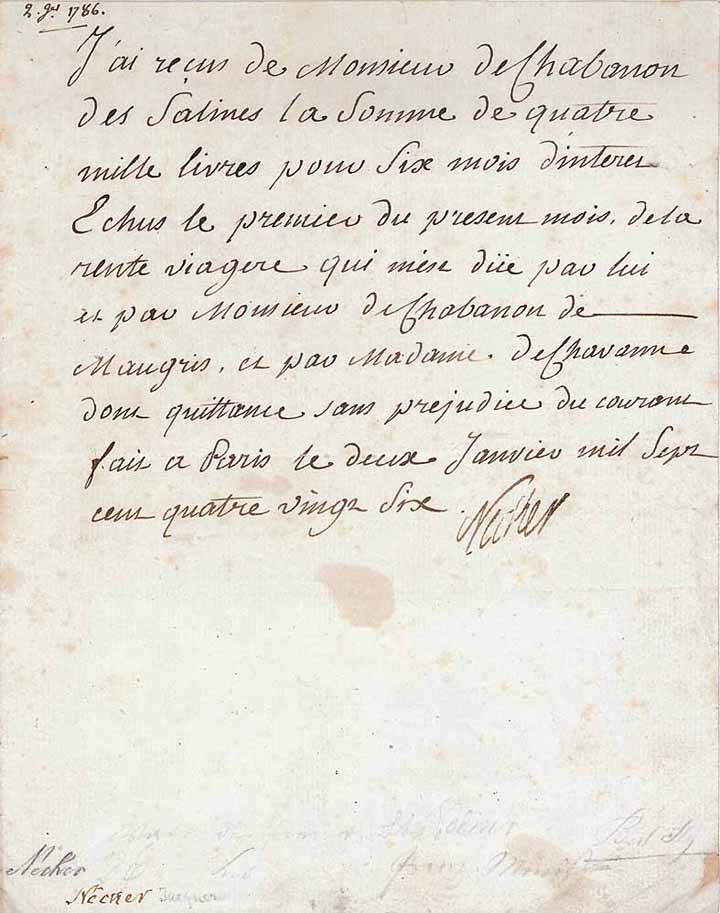 2. Jer 1786.
J'ai reçus de Monsieur de Chabanon
des Salines la Somme de quatre
mille livres pour Six mois d'interet
Echus le premier du present mois, de la
rente viagere qui m'est düe par lui
et par Monsieur de Chabanon de
Maugris, et par Madame de Chavanne
dont quittance sans prejudice du courant
fait a Paris le deux Janvier mil Sept
cent quatre vingt Six.
Necker
Necker
Necker Jacques